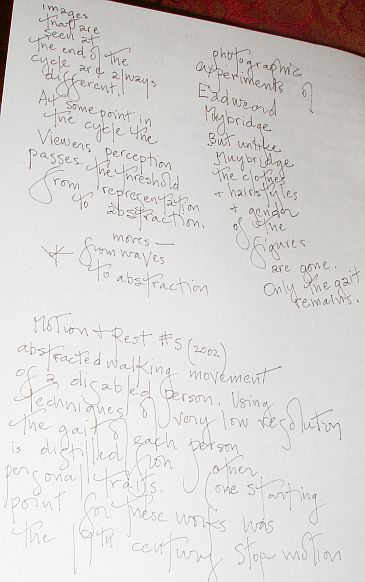 images
that are
seen at
the end of the
cycle are always
different.
At some point in
the cycle the
Viewers perception
passes the threshold
from representation
to abstraction.
moves —
from waves
to abstraction
Motion + Rest #5 (2002)
abstracted walking movement
of a disabled person. Using
techniques of very low resolution
the gait of each person
is distilled from other
personal traits. (one starting
point for these works was
the 19th century stop motion
photographic
experiments of
Eadweard
Mybridge
But unlike
Muybridge
the clothes
+ hairstyles
+ gender
of the
figures
are gone.
Only the gait
remains.